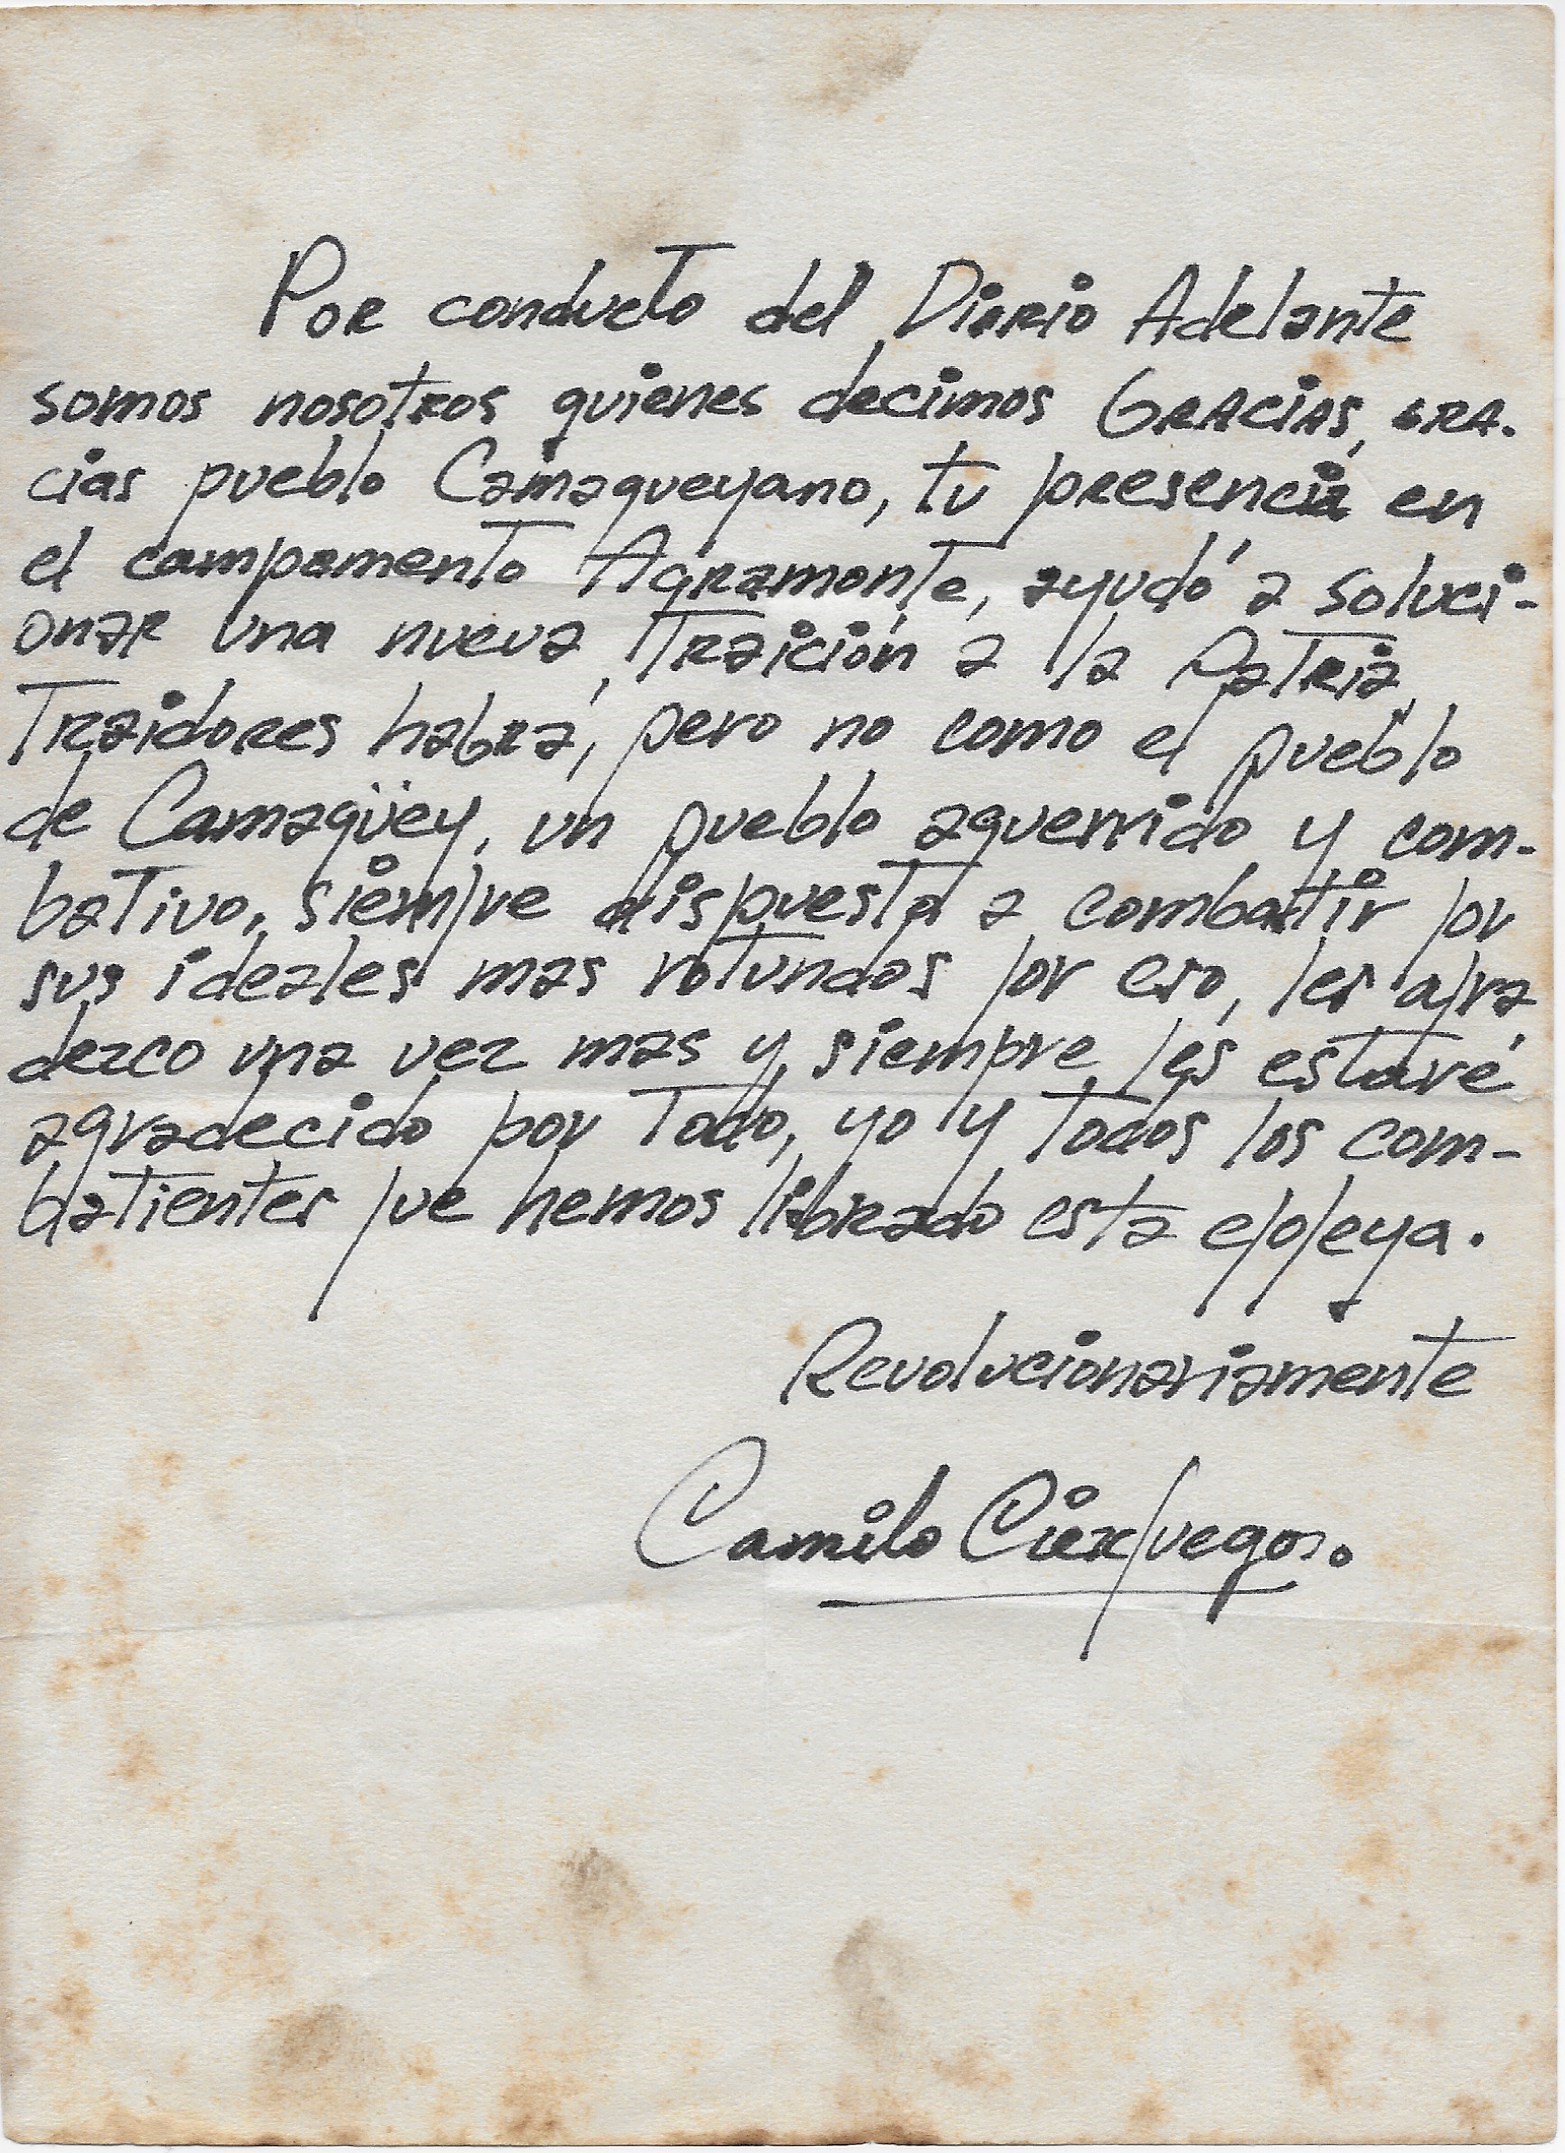 Por conducto del Diario Adelante
somos nosotros quienes decimos Gracias, gra-
cias pueblo Camagueyano, tu presencia en
el campamento Agramonte, ayudó a soluci-
onar una nueva Traición a la Patria,
Traidores habrá, pero no como el pueblo
de Camagüey, un pueblo aguerrido y com-
bativo, siempre dispuesto a combatir por
sus ideales mas rotundos por eso, les agra
dezco una vez mas y siempre les estaré
agradecido por Todo, yo y Todos los com-
batientes que hemos librado esta epopeya.
Revolucionariamente
Camilo Cienfuegos.